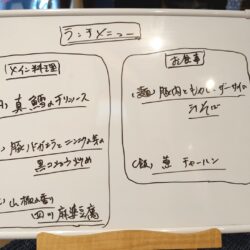 ランチメニュー
メイン料理
真鱈のチリソース
豚バラとニンニクの芽の
黒コショウ炒め
山椒香り
四川麻婆豆腐
お食事
(麺) 豚肉ともやし、ザーサイの
汁そば
(飯) 葱チャーハン